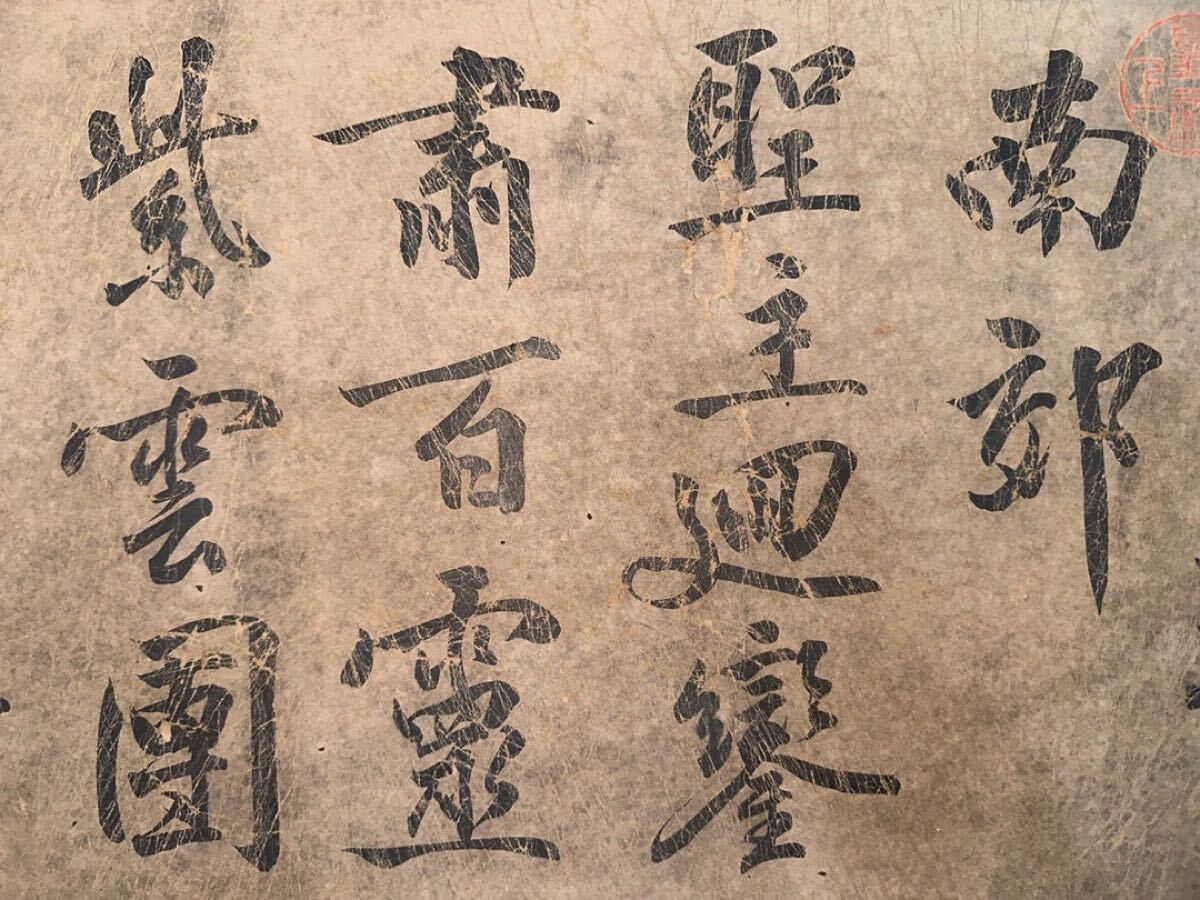 南郊
聖主迴鑾
肅百靈
紫雲團